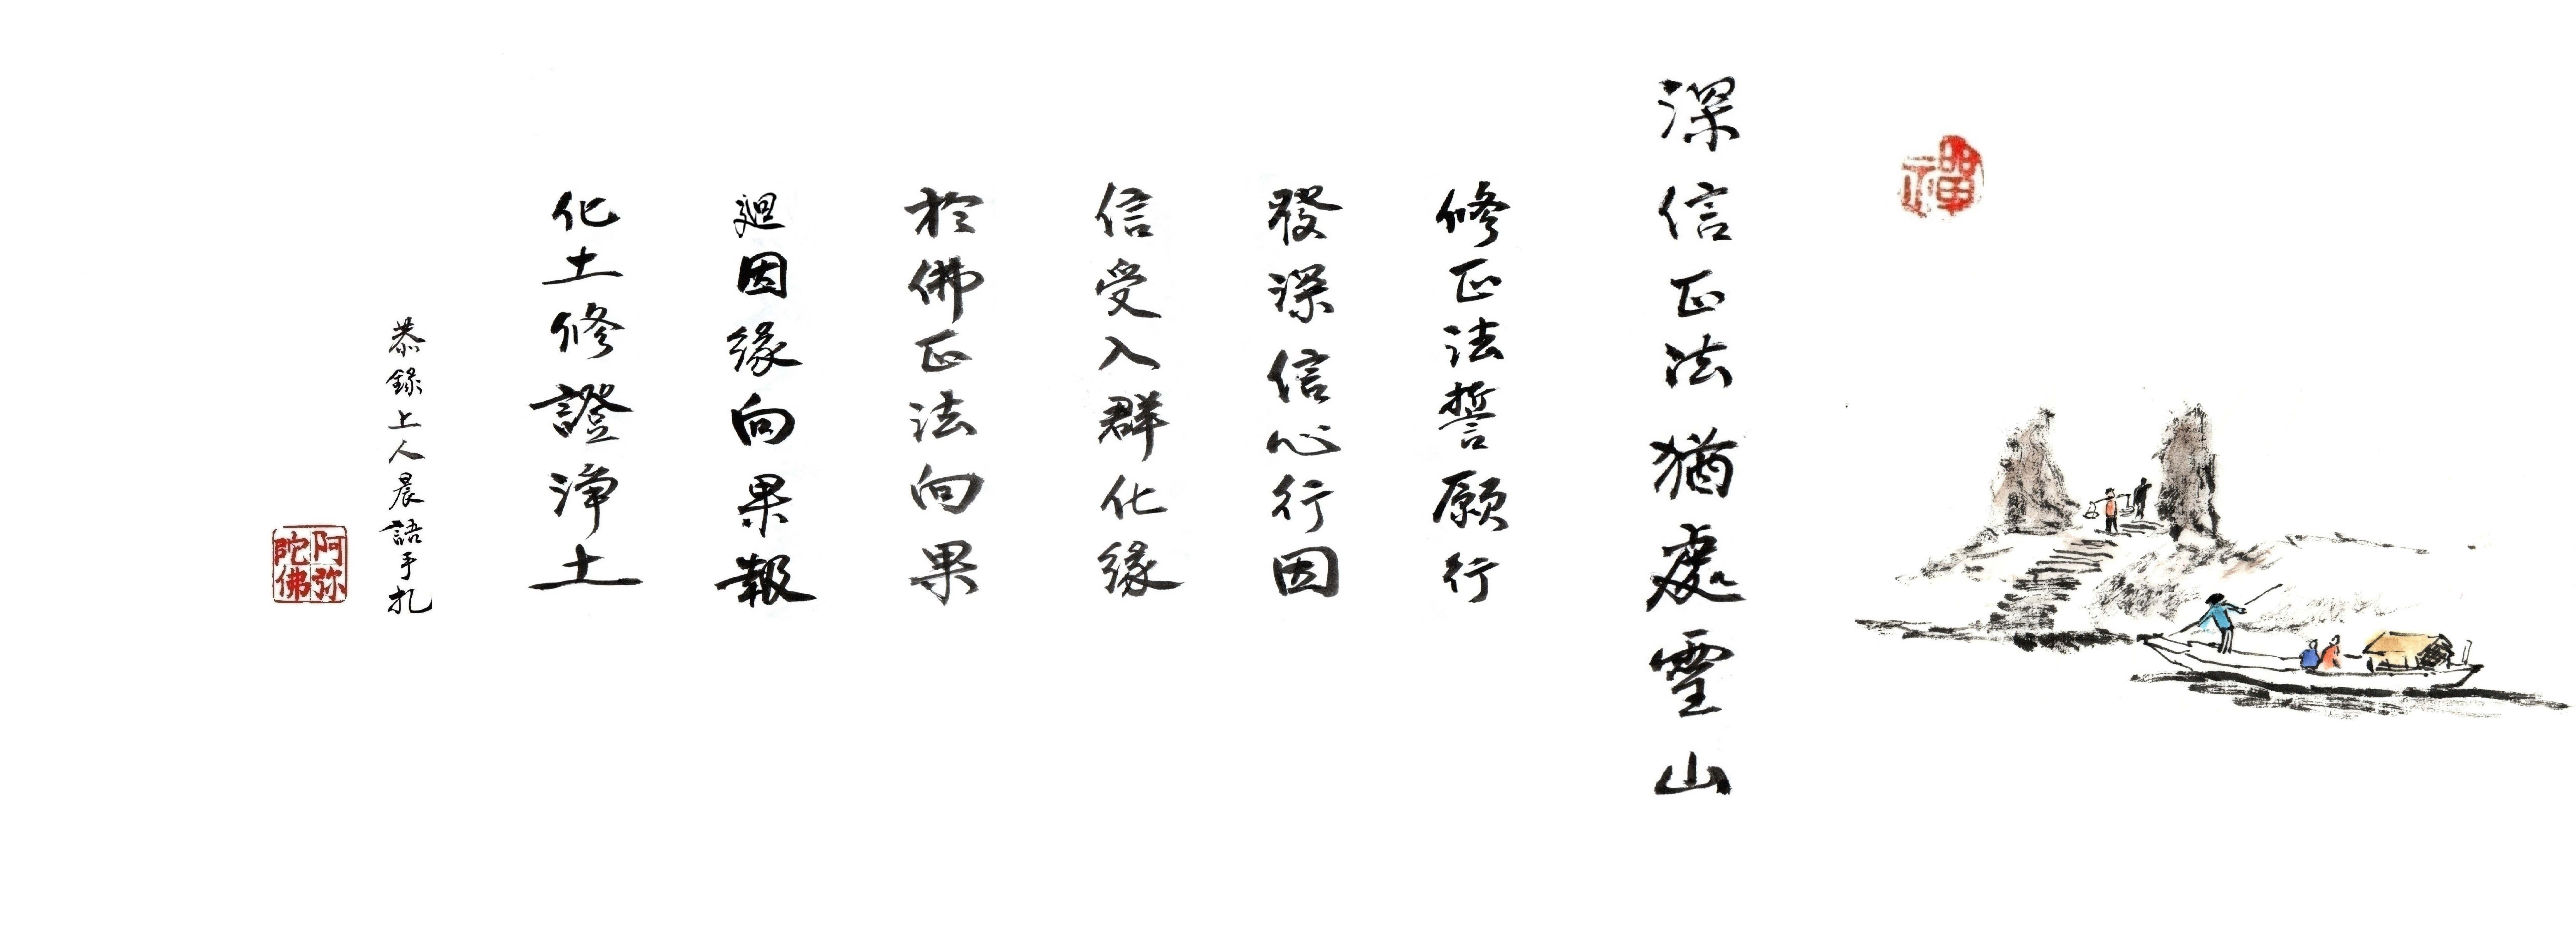 禪
深信正法猶處靈山
修正法誓願行
發深信心行因
信受入群化緣
於佛正法向果
迴因緣向果報
化土修證淨土
恭錄上人晨語手扎
阿弥
陀佛